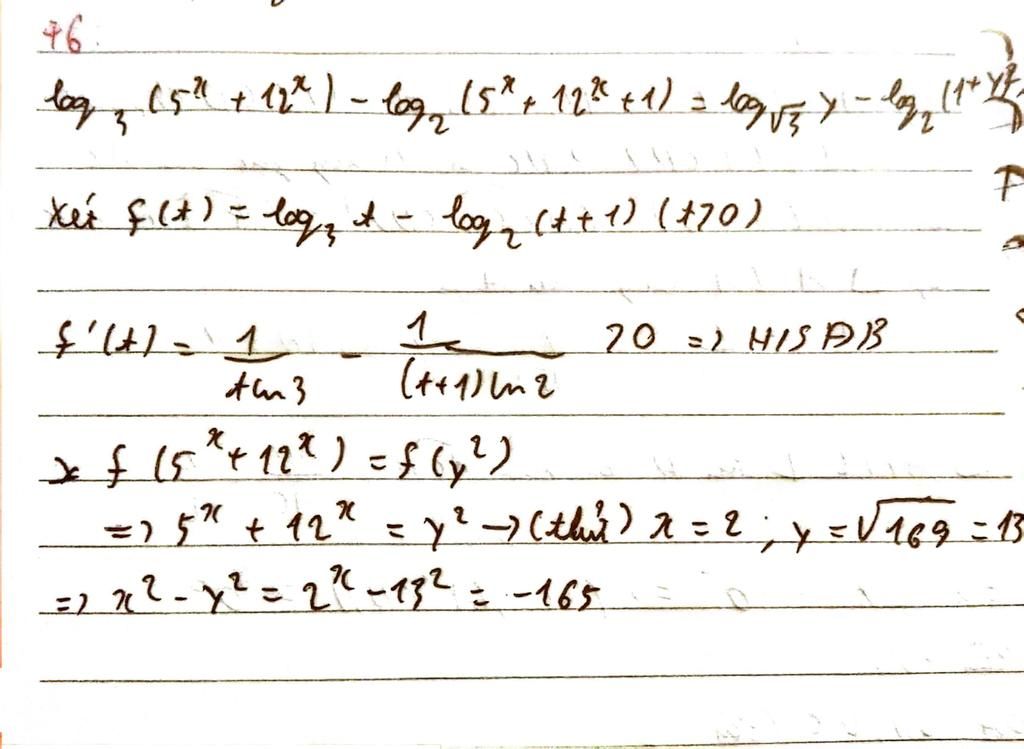 46.
log₃ (5ˣ + 12ˣ) - log₂ (5ˣ + 12ˣ + 1) = log_√3 y - log₂ (1 + y²)
Xét f(t) = log₃ t - log₂ (t + 1) (t > 0)
f'(t) = 1/(t ln 3) - 1/((t + 1) ln 2) > 0 => H/S ĐB
f (5ˣ + 12ˣ) = f(y²)
=> 5ˣ + 12ˣ = y² → (thử) x = 2 ; y = √169 = 13
=> x² - y² = 2ˣ - 13² = -165